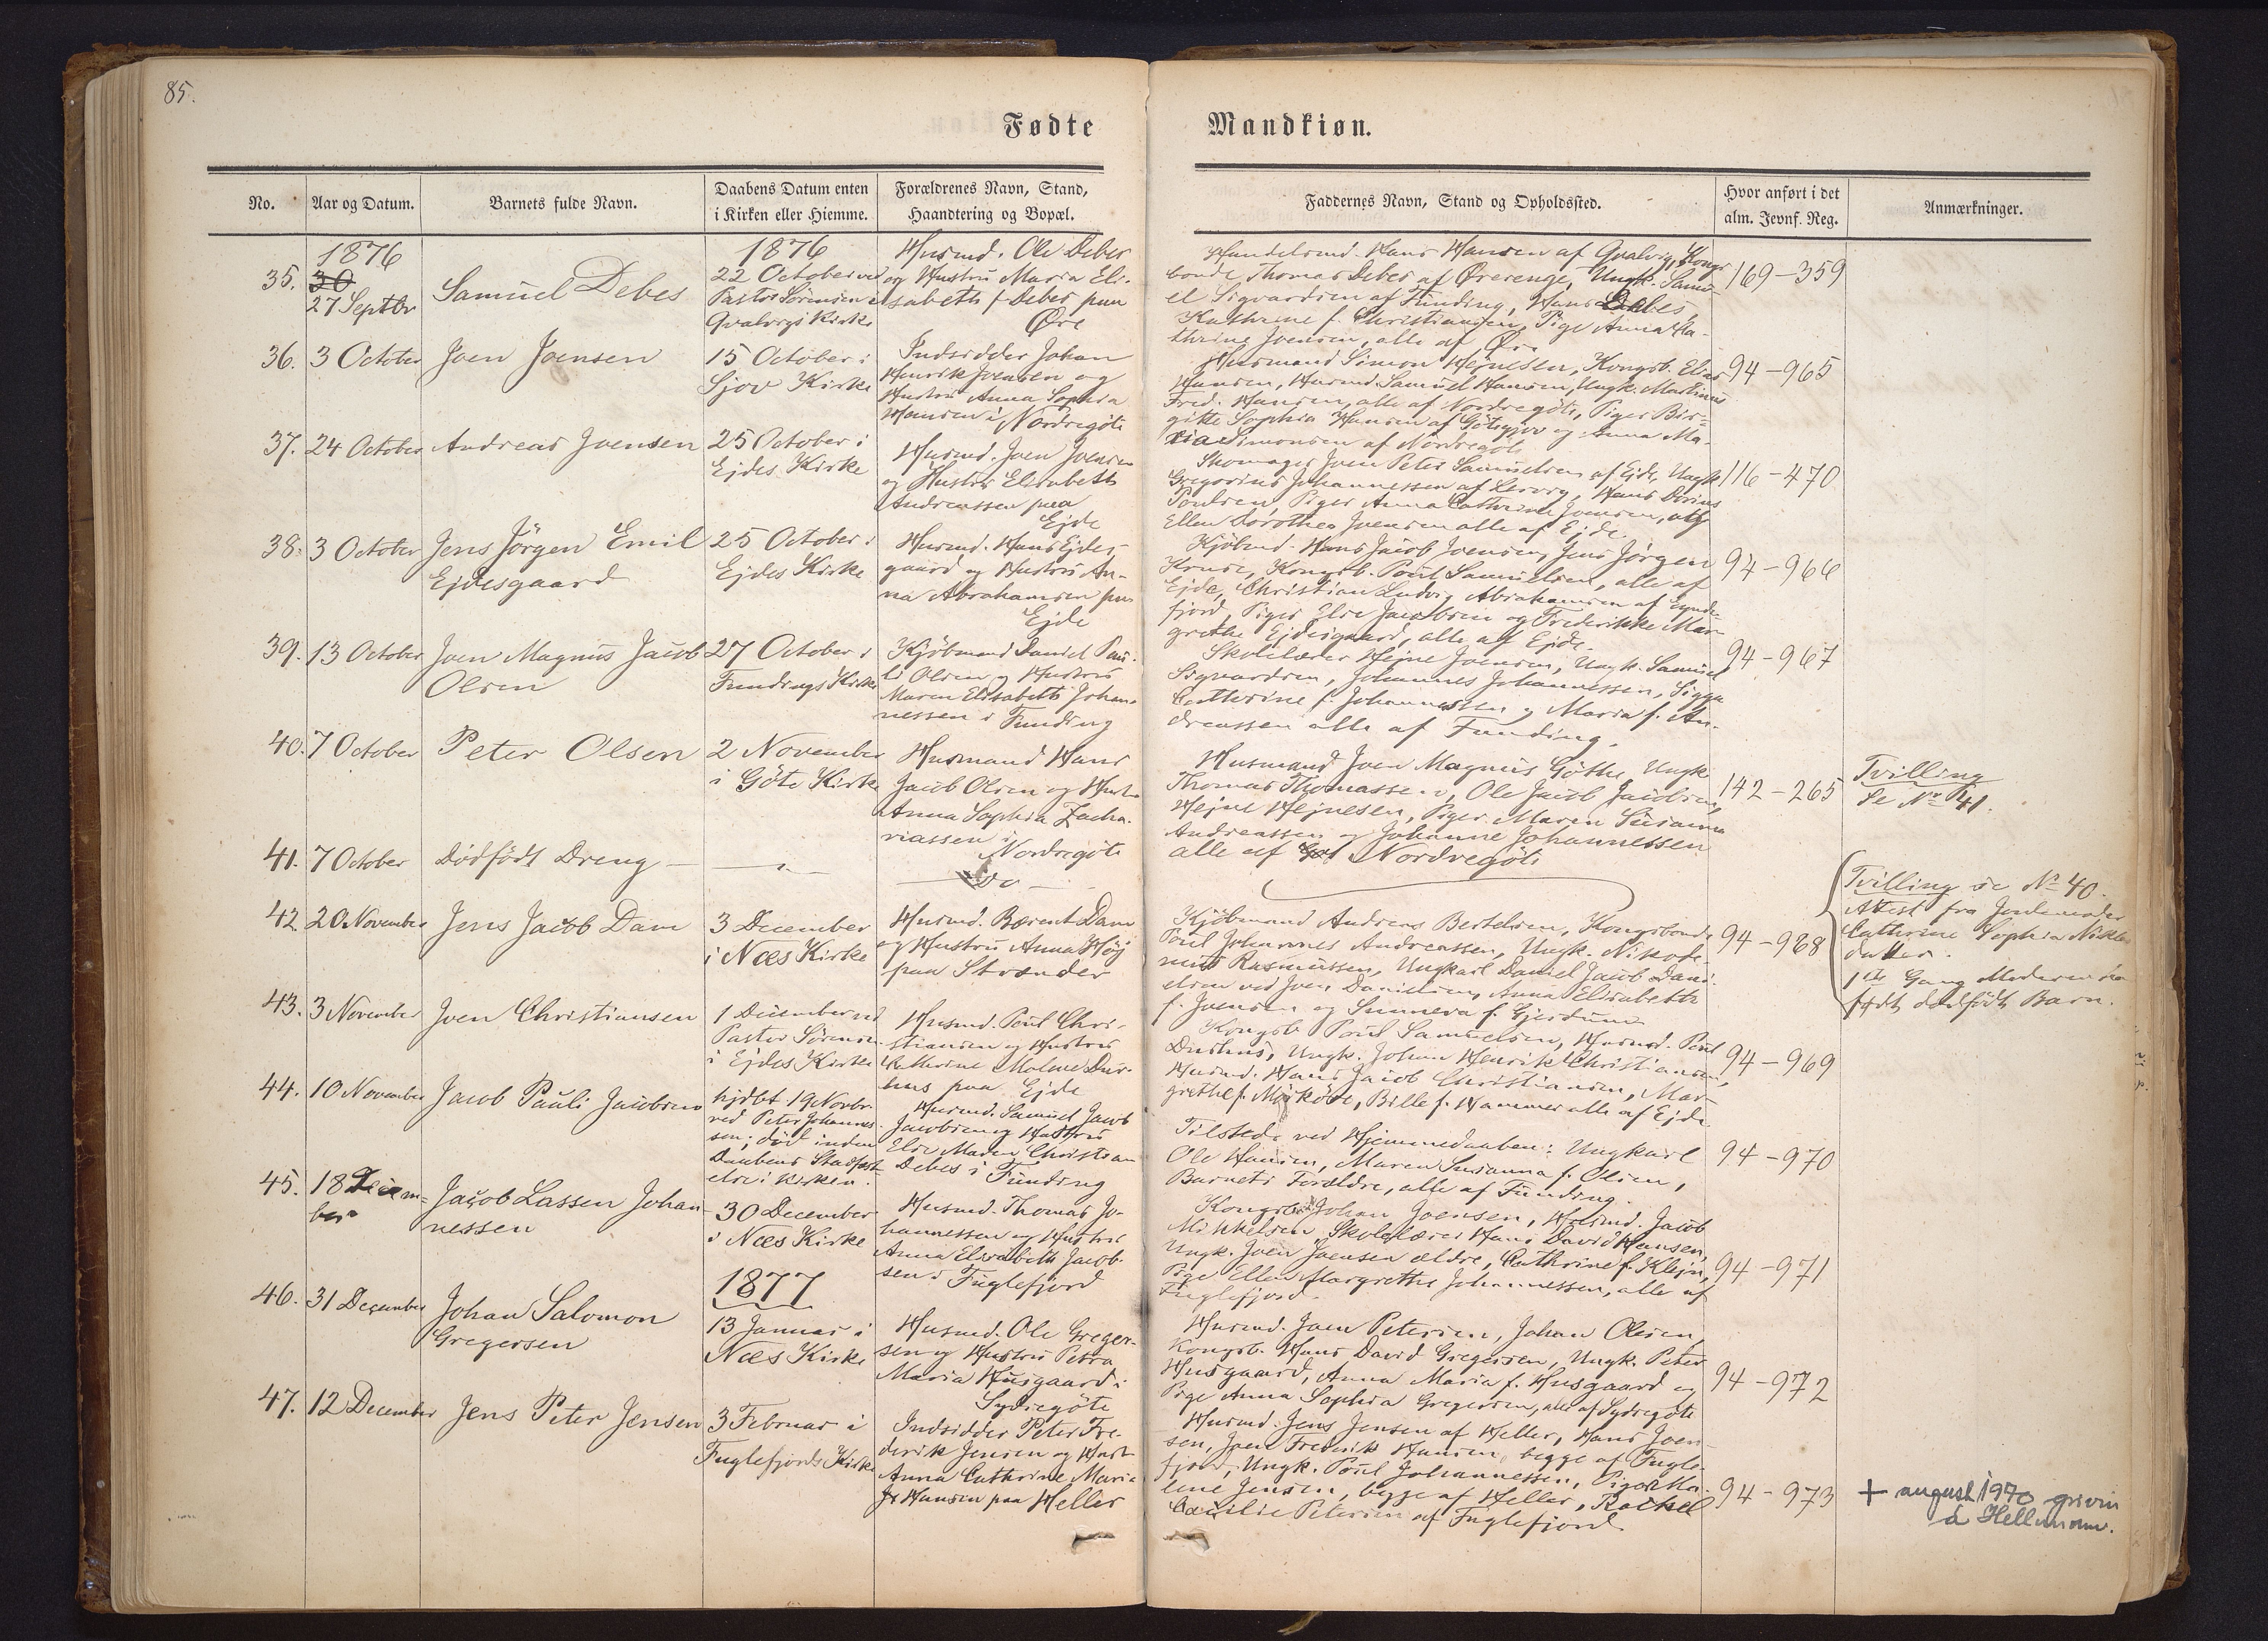 85.
Fødte
Mandkiøn.
No.
Aar og Datum.
Barnets fulde Navn.
Daabens Datum enten
i Kirken eller Hiemme.
Forældrenes Navn, Stand,
Haandtering og Bopæl.
Faddernes Navn, Stand og Opholdssted.
Hvor anført i det
alm. Jevnf. Reg.
Anmærkninger.
35.
1876
30
27 Septbr
Samuel Debes
1876
22 October ved
Pastor Sørensen i
Qvalvigs Kirke
Husmd. Ole Debes
og Hustru Maria Eli-
sabeth f. Debes paa
Øre
Handelsmd. Hans Hansen af Qvalvig, Kongs
bonde Thomas Debes af Ørerenge, Ungk. Samu-
el Sigvardsen af Funding, Hans Debes,
Kathrine f. Christiansen, Pige Anna Ka-
thrine Joensen, alle af Øre
169-359
36.
3 October
Joen Joensen
15 October i
Sjov Kirke
Indsidder Johan
Henrik Joensen og
Hustru Anna Sophia
Hansen i Nordregöte
Husmand Simon Hejnesen, Kongsb. Elias
Hansen, Husmd. Samuel Hansen, Ungk. Martinus
Fred. Hansen, alle af Nordregöte, Piger Bir-
gitte Sophia Hansen af Götegjov og Anna Ma-
ria Simonsen af Nordregöte
94-965
37.
24 October
Andreas Joensen
25 October i
Ejdes Kirke
Husmd. Joen Joensen
og Hustru Elisabeth
Andreassen paa
Ejde
Skomager Joen Peter Samuelsen af Ejde, Ungk.
Gregorius Johannessen af Lervig, Hans Dorius
Poulsen, Piger Anna Cathrine Joensen, og
Ellen Dorothea Joensen alle af Ejde.
116-470
38.
3 October
Jens Jörgen Emil
Ejdesgaard
25 October i
Ejdes Kirke
Husmd. Hans Ejdes-
gaard og Hustru An-
na Abrahamsen paa
Ejde
Kjöbmd. Hans Jacob Joensen, Jens Jörgen
Kruse, Kongsb. Poul Samuelsen, alle af
Ejde, Christian Ludvig Abrahamsen af Funde-
fjord, Piger Else Jacobsen og Frederikke Mar-
grethe Ejdesgaard, alle af Ejde.
94-966
39.
13 October
Joen Magnus Jacob
Olsen
27 October i
Fundings Kirke
Kjöbmand Daniel Pau-
li Olsen og Hustru
Maren Elisabeth Johan-
nessen i Funding
Skolelærer Hejne Joensen, Ungk. Samuel
Sigvardsen, Johannes Johannessen, Sigga
Catthrine f. Johannessen og Maria f. An-
dreassen alle af Funding.
94-967
40.
7 October
Peter Olsen
2 November
i Göte Kirke
Husmand Hans
Jacob Olsen og Hustru
Anna Sophia Zacha-
riassen i
Nordregöte
Husmand Joen Magnus Göthe, Ungk.
Thomas Thomassen, Ole Jacob Jacobsen,
Hejne Hejnesen, Piger Maren Susanna
Andreassen og Johanne Johannessen
alle af Nordregöte
142-265
Tvilling
Se No 41.
41.
7 October
Dödfödt Dreng
Do
Tvilling se No 40.
Attest fra Jordemoder
Cathrine Sophia Niklas
datter.
1ste Gang Moderen har
födt dødfödt Barn.
42
20 November
Jens Jacob Dam
3 December
i Næs Kirke
Husmd. Bærent Dam
og Hustru Anna Höj
paa Strænder
Kjöbmand Andreas Bertelsen, Kongsbonde
Poul Johannes Andreassen, Ungk. Nikode-
mus Rasmussen, Ungkarl Daniel Jacob Dani-
elsen ved Joen Danielsen, Anna Elisabeth
f. Joensen og Sunneva f. Gjerdum
94-968
43.
3 November
Joen Christiansen
1 December ved
Pastor Sørensen
i Ejdes Kirke
Husmd. Poul Chri-
stiansen og Hustru
Cathrine Malene Dur-
hus paa Ejde
Kongsb. Poul Samuelsen, Husmd. Poul
Durhus, Ungk. Johan Henrik Christiansen,
Husmd. Hans Jacob Christiansen, Mar-
grethe f. Mörköre, Bille f. Hammer alle af Ejde
94-969
44.
10 November
Jacob Pauli Jacobsen
hjdbt 19 Novbr.
ved Peter Johannes-
sen; död inden
Daabens Stadfæst
else i Kirken.
Husmd. Samuel Jacob
Jacobsen og Hustru
Else Maren Christian
Debes i Funding
Tilstede ved Hjemmedaaben: Ungkarl
Ole Hansen, Maren Susanna f. Olsen,
Barnets Forældre, alle af Funding.
94-970
45.
18 Decem-
ber
Jacob Lassen Johan-
nessen
30 December
i Næs Kirke
Husmd. Thomas Jo-
hannessen og Hustru
Anna Elisabeth Jacob-
sen i Fuglefjord
Kongsb. Johan Joensen, Husmd. Jacob
Mikkelsen, Skolelærer Hans David Hansen,
Ungk. Joen Joensen ældre, Cathrine f. Klejn,
Pige Ellen Margrethe Johannessen, alle af
Fuglefjord.
94-971
46.
31 December
Johan Salomon
Gregersen
1877
13 Januar i
Næs Kirke
Husmd. Ole Greger-
sen og Hustru Petra
Maria Husgaard i
Sydregöte
Husmd. Joen Petersen, Johan Olsen,
Kongsb. Hans David Gregersen, Ungk. Peter
Husgaard, Anna Maria f. Husgaard og
Pige Anna Sophia Gregersen, alle af Sydregöte
94-972
47.
12 December
Jens Peter Jensen
3 Februar i
Fuglefjords Kirke
Indsidder Peter Fre-
derik Jensen og Hustr.
Anna Cathrine Marie
Hansen paa Heller
Husmd. Jens Jensen af Heller, Hans Joen-
sen, Joen Frederik Hansen, begge af Fugle-
fjord, Ungk. Poul Johannessen, Piger Ma-
lene Jensen, begge af Heller, Rachel
Cæcilie Petersen af Fuglefjord
94-973
+ august 1970 grivin
á Hellunum.